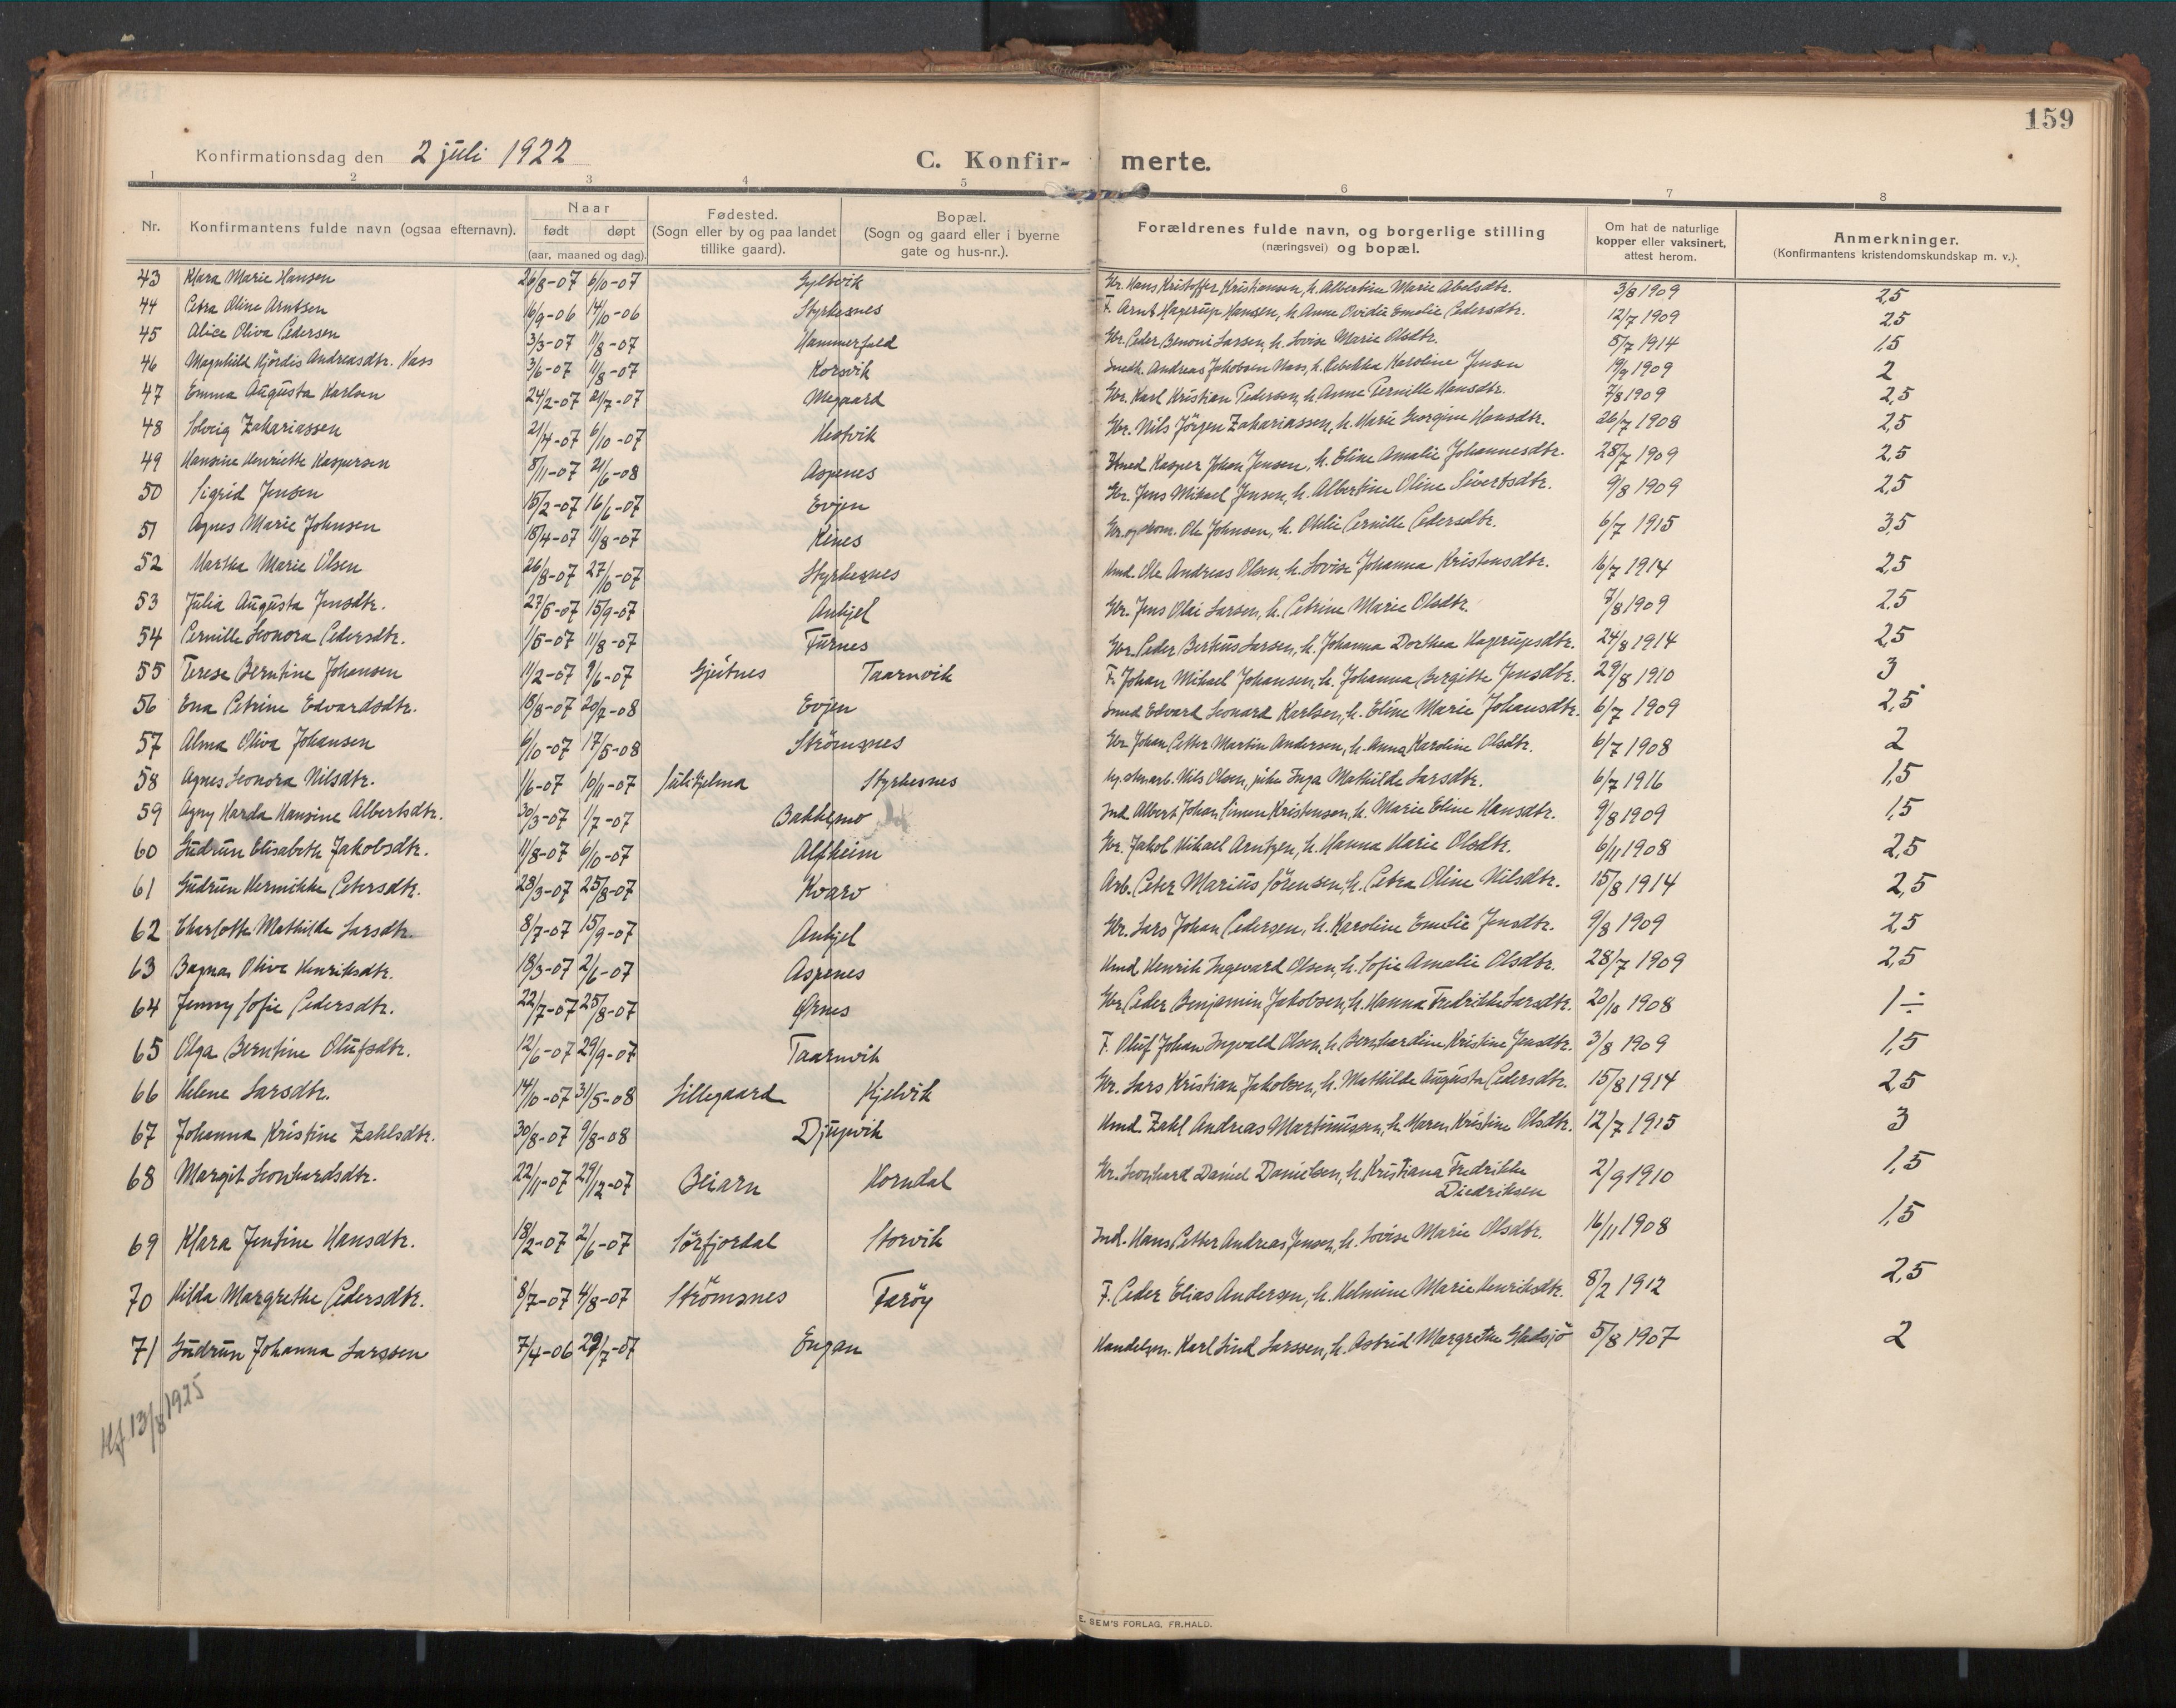 159
Konfirmationsdag den 2 juli 1922 C. Konfir- merte.
1 2 3 4 5 6 7 8
Nr. Konfirmantens fulde navn (ogsaa efternavn). Naar født døpt (aar, maaned og dag). Fødested. (Sogn eller by og paa landet tillike gaard). Bopæl. (Sogn og gaard eller i byerne gate og hus-nr.). Forældrenes fulde navn, og borgerlige stilling (næringsvei) og bopæl. Om hat de naturlige kopper eller vaksinert, attest herom. Anmerkninger. (Konfirmantens kristendomskundskap m. v.).
43 Klara Marie Hansen 26/8-07 6/10-07 Gyltvik Gbr. Hans Kristoffer Kristiansen, h. Albertine Marie Abelsdtr. 3/8 1909 2,5
44 Petra Oline Arntsen 16/9-06 14/10-06 Styrkesnes F. Arnt Hagerup Hansen, h. Anne Ovidie Emelie Pedersdtr. 12/7 1909 2,5
45 Alice Oliva Pedersen 3/3-07 11/8-07 Hammerfald Gbr. Peder Benoni Larsen, h. Lovise Marie Olsdtr. 5/7 1914 1,5
46 Magnhild Hjördis Andreasdtr. Nass 3/6-07 11/8-07 Korsvik Andreas Jakobsen Nass, h. Rebekka Karoline Jensen 19/9 1909 2
47 Emma Augusta Karlsen 24/2-07 21/7-07 Megaard Gbr. Karl Kristian Pedersen, h. Anne Pernille Hansdtr. 7/8 1909 2,5
48 Solveig Zakariassen 21/4-07 6/10-07 Hestvik Gbr. Nils Jörgen Zakariassen, h. Marie Georgine Hansdtr. 26/7 1908 2,5
49 Hansine Henriette Kaspersen 8/11-07 21/6-08 Aspenes Kasper Johan Jensen, h. Eline Amalie Johannesdtr. 28/7 1909 2,5
50 Sigrid Jensen 15/2-07 16/6-07 Evjen Gbr. Jens Mikael Jensen, h. Albertine Oline Sivertsdtr. 9/8 1909 2,5
51 Agnes Marie Johnsen 18/4-07 11/8-07 Kines Gbr. og Ole Johnsen, h. Otelie Pernille Pedersdtr. 6/7 1915 3,5
52 Martha Marie Olsen 26/8-07 27/10-07 Styrkesnes Hmd. Ole Andreas Olsen, h. Lovise Johanna Kristensdtr. 16/7 1914 2,5
53 Julia Augusta Jensdtr. 27/5-07 15/9-07 Ankjel Gbr. Jens Olai Larsen, h. Petrine Marie Olsdtr. 9/8 1909 2,5
54 Pernille Leonora Pedersdtr. 1/5-07 11/8-07 Furnes Gbr. Peder Berthus Larsen, h. Johanna Dorthea Hagerupsdtr. 24/8 1914 2,5
55 Terese Berntine Johansen 11/2-07 9/6-07 Gjeitnes Taarnvik F. Johan Mikael Johansen, h. Johanna Bergitte Jensdtr. 29/8 1910 3
56 Ena Petrine Edvardsdtr. 18/8-07 20/7-08 Evjen Edvard Leonard Karlsen, h. Eline Marie Johansdtr. 6/7 1909 2,5
57 Alma Oliva Johansen 6/10-07 17/5-08 Strömsnes Gbr. Johan Petter Martin Andersen, h. Anna Karoline Olsdtr. 6/7 1908 2
58 Agnes Leonora Nilsdtr. 1/6-07 10/11-07 Sulitjelma Styrkesnes Nils Olsen, pike Inga Mathilde Larsdtr. 6/7 1916 1,5
59 Agny Harda Hansine Albertsdtr. 30/3-07 1/7-07 Bakkemo Ind. Albert Johan Simon Kristensen, h. Marie Eline Hansdtr. 9/8 1909 1,5
60 Gudrun Elisabeth Jakobsdtr. 11/8-07 6/10-07 Alfheim Gbr. Jakob Mikael Arntzen, h. Hanna Marie Olsdtr. 6/11 1908 2,5
61 Gudrun Hermikke Petersdtr. 28/3-07 25/8-07 Kvarv Arb. Peter Marius Sörensen, h. Petra Oline Nilsdtr. 15/8 1914 2,5
62 Charlotte Mathilde Larsdtr. 8/7-07 15/9-07 Ankjel Gbr. Lars Johan Pedersen, h. Karoline Emelie Jensdtr. 9/8 1909 2,5
63 Bagna Olive Henriksdtr. 18/3-07 2/6-07 Aspenes Hmd Henrik Ingevard Olsen, h. Sofie Amalie Olsdtr. 28/7 1909 2,5
64 Jenny Sofie Pedersdtr. 22/7-07 25/8-07 Ørnes Gbr. Peder Benjamin Jakobsen, h. Hanna Fredrikke Larsdtr. 20/10 1908 1÷
65 Olga Berntine Olufsdtr. 12/6-07 29/9-07 Taarnvik F. Oluf Johan Ingvald Olsen, h. Bernhardine Kristine Jensdtr. 3/8 1909 1,5
66 Helene Larsdtr. 14/10-07 31/5-08 Lillegaard Kjelvik Gbr. Lars Kristian Jakobsen, h. Mathilde Augusta Pedersdtr. 15/8 1914 2,5
67 Johanna Kristine Zahlsdtr. 30/8-07 9/8-08 Djupvik Hmd. Zahl Andreas Martinussen, h. Maren Kristine Olsdtr. 12/7 1915 3
68 Margit Leonhardsdtr. 22/11-07 29/12-07 Beiarn Horndal Gbr. Leonhard Daniel Danielsen, h. Kristiana Fredrikke 2/9 1910 1,5
Diedriksen
69 Klara Jentine Hansdtr. 18/2-07 2/6-07 Sörfjordal Storvik Ind. Hans Petter Andreas Jensen, h. Lovise Marie Olsdtr. 16/11 1908 1,5
70 Hilda Margrethe Pedersdtr. 8/7-07 4/8-07 Strömsnes Faröy F. Peder Elias Andersen, h. Helmine Marie Henriksdtr. 8/2 1912 2,5
71 Gudrun Johanna Larssen 7/4-06 29/7-07 Engan Handelsm. Karl Lind Larssen, h. Astrid Margrethe Gladsjö 5/8 1907 2
13/8 1925
E. SEM'S FORLAG, FR.HALD.